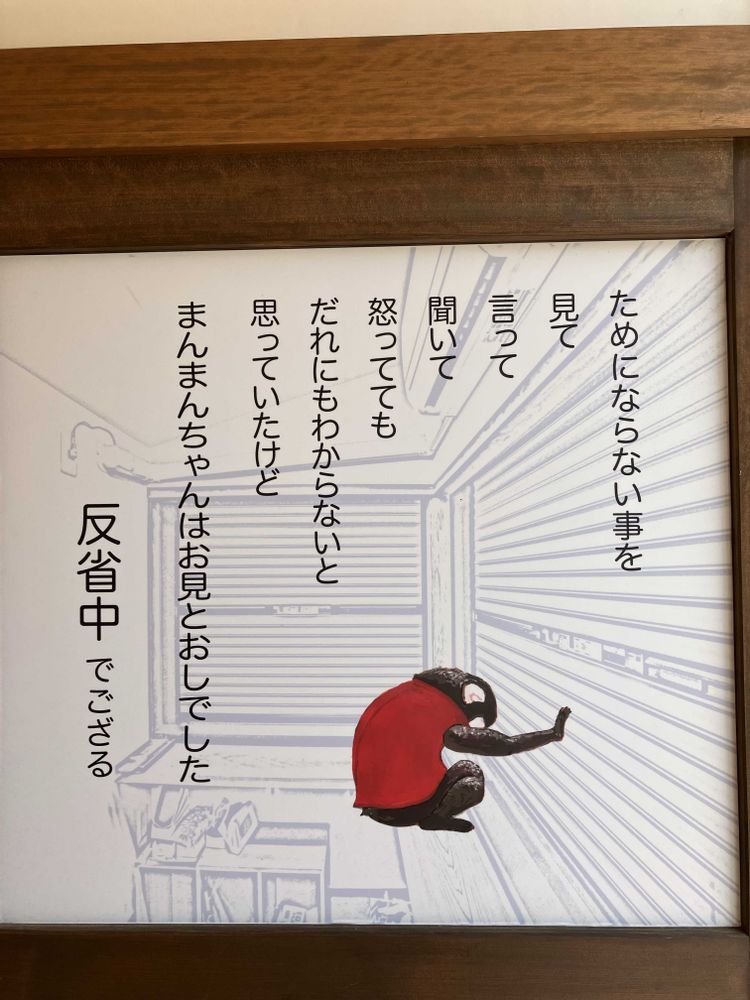 ためにならない事を
見て
言って
聞いて
怒ってても
だれにもわからないと
思っていたけど
まんまんちゃんはお見とおしでした
反省中でござる